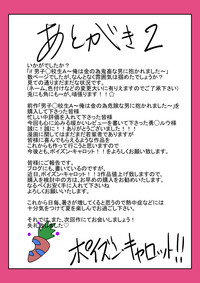 あとがき2
いかがでしたか?
「if 男子○校生A～俺は金の為鬼畜な男に抱かれました～」
数ページですが、なんとなく雰囲気は掴めたでしょうか?
見ての通りまだまだな状況です。
(ネーム、色付けなどの変更大いに有りえますのでご了承下さい)
これからに、もや～んが、頑張ります!!
前作「男子○校生A～俺は金の為危険な男に抱かれました～」を
購入して下さった皆様
忙しい中評価を入れて下さった皆様
今回も心に沁みる暖かいレビューを書いて下さった勇○ルウ様
誠に!!誠に!!ありがとうございました!!!
漫画に関してはまだまだ若輩者でありますが
これからも作って行こうと思いますので
今後とも、ポイズン・キャロット!!を
よろしくお願い致します。
皆様にご報告です。
ブログにも書いているのですが、
近日、ポイズン・キャロット!!3作品値上げ致しますので、
購入を検討中の方は、お早めの購入をお勧めいたします。
なるべく安く手に入れて下さいね♪
よろしくお願いします!
これから日毎、暑さが増してくると思うので熱中症などには
十分気をつけて夏を楽しんで下さいね♪
それでは、また、次回作にてお会いしましょう!
失礼
ポイズン・キャロット!!